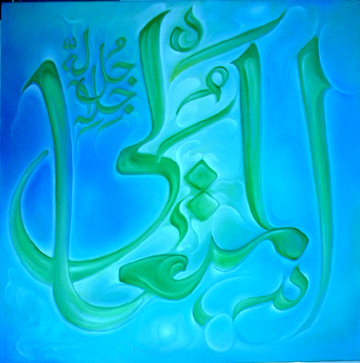 المتعالي
جل جلاله